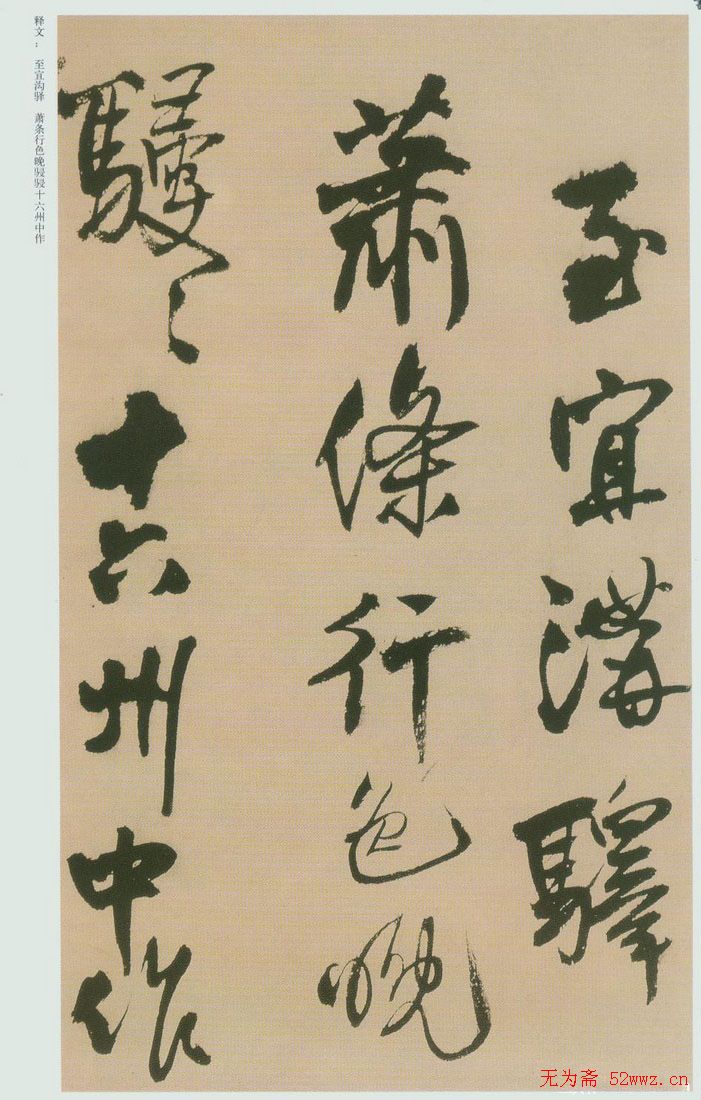 至宜溝驛
蕭條行色晚
駸〻十六州中作
释文：至宜沟驿 萧条行色晚骎骎十六州中作
无为斋 52wwz.cn